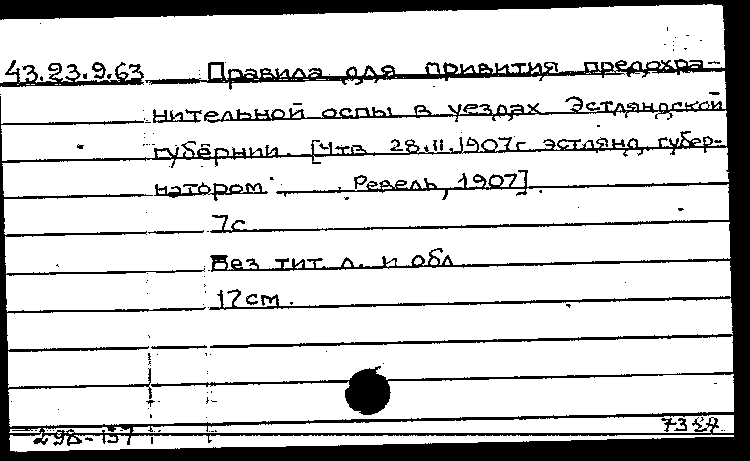 43.23.9.63 Правила для привития предохра-
нительной оспы в уездах Эстляндской
губернии. [Утв. 28.II.1907г эстлянд. губер-
натором. Ревель, 1907].
7с.
Без тит. л. и обл.
17см.
298-137